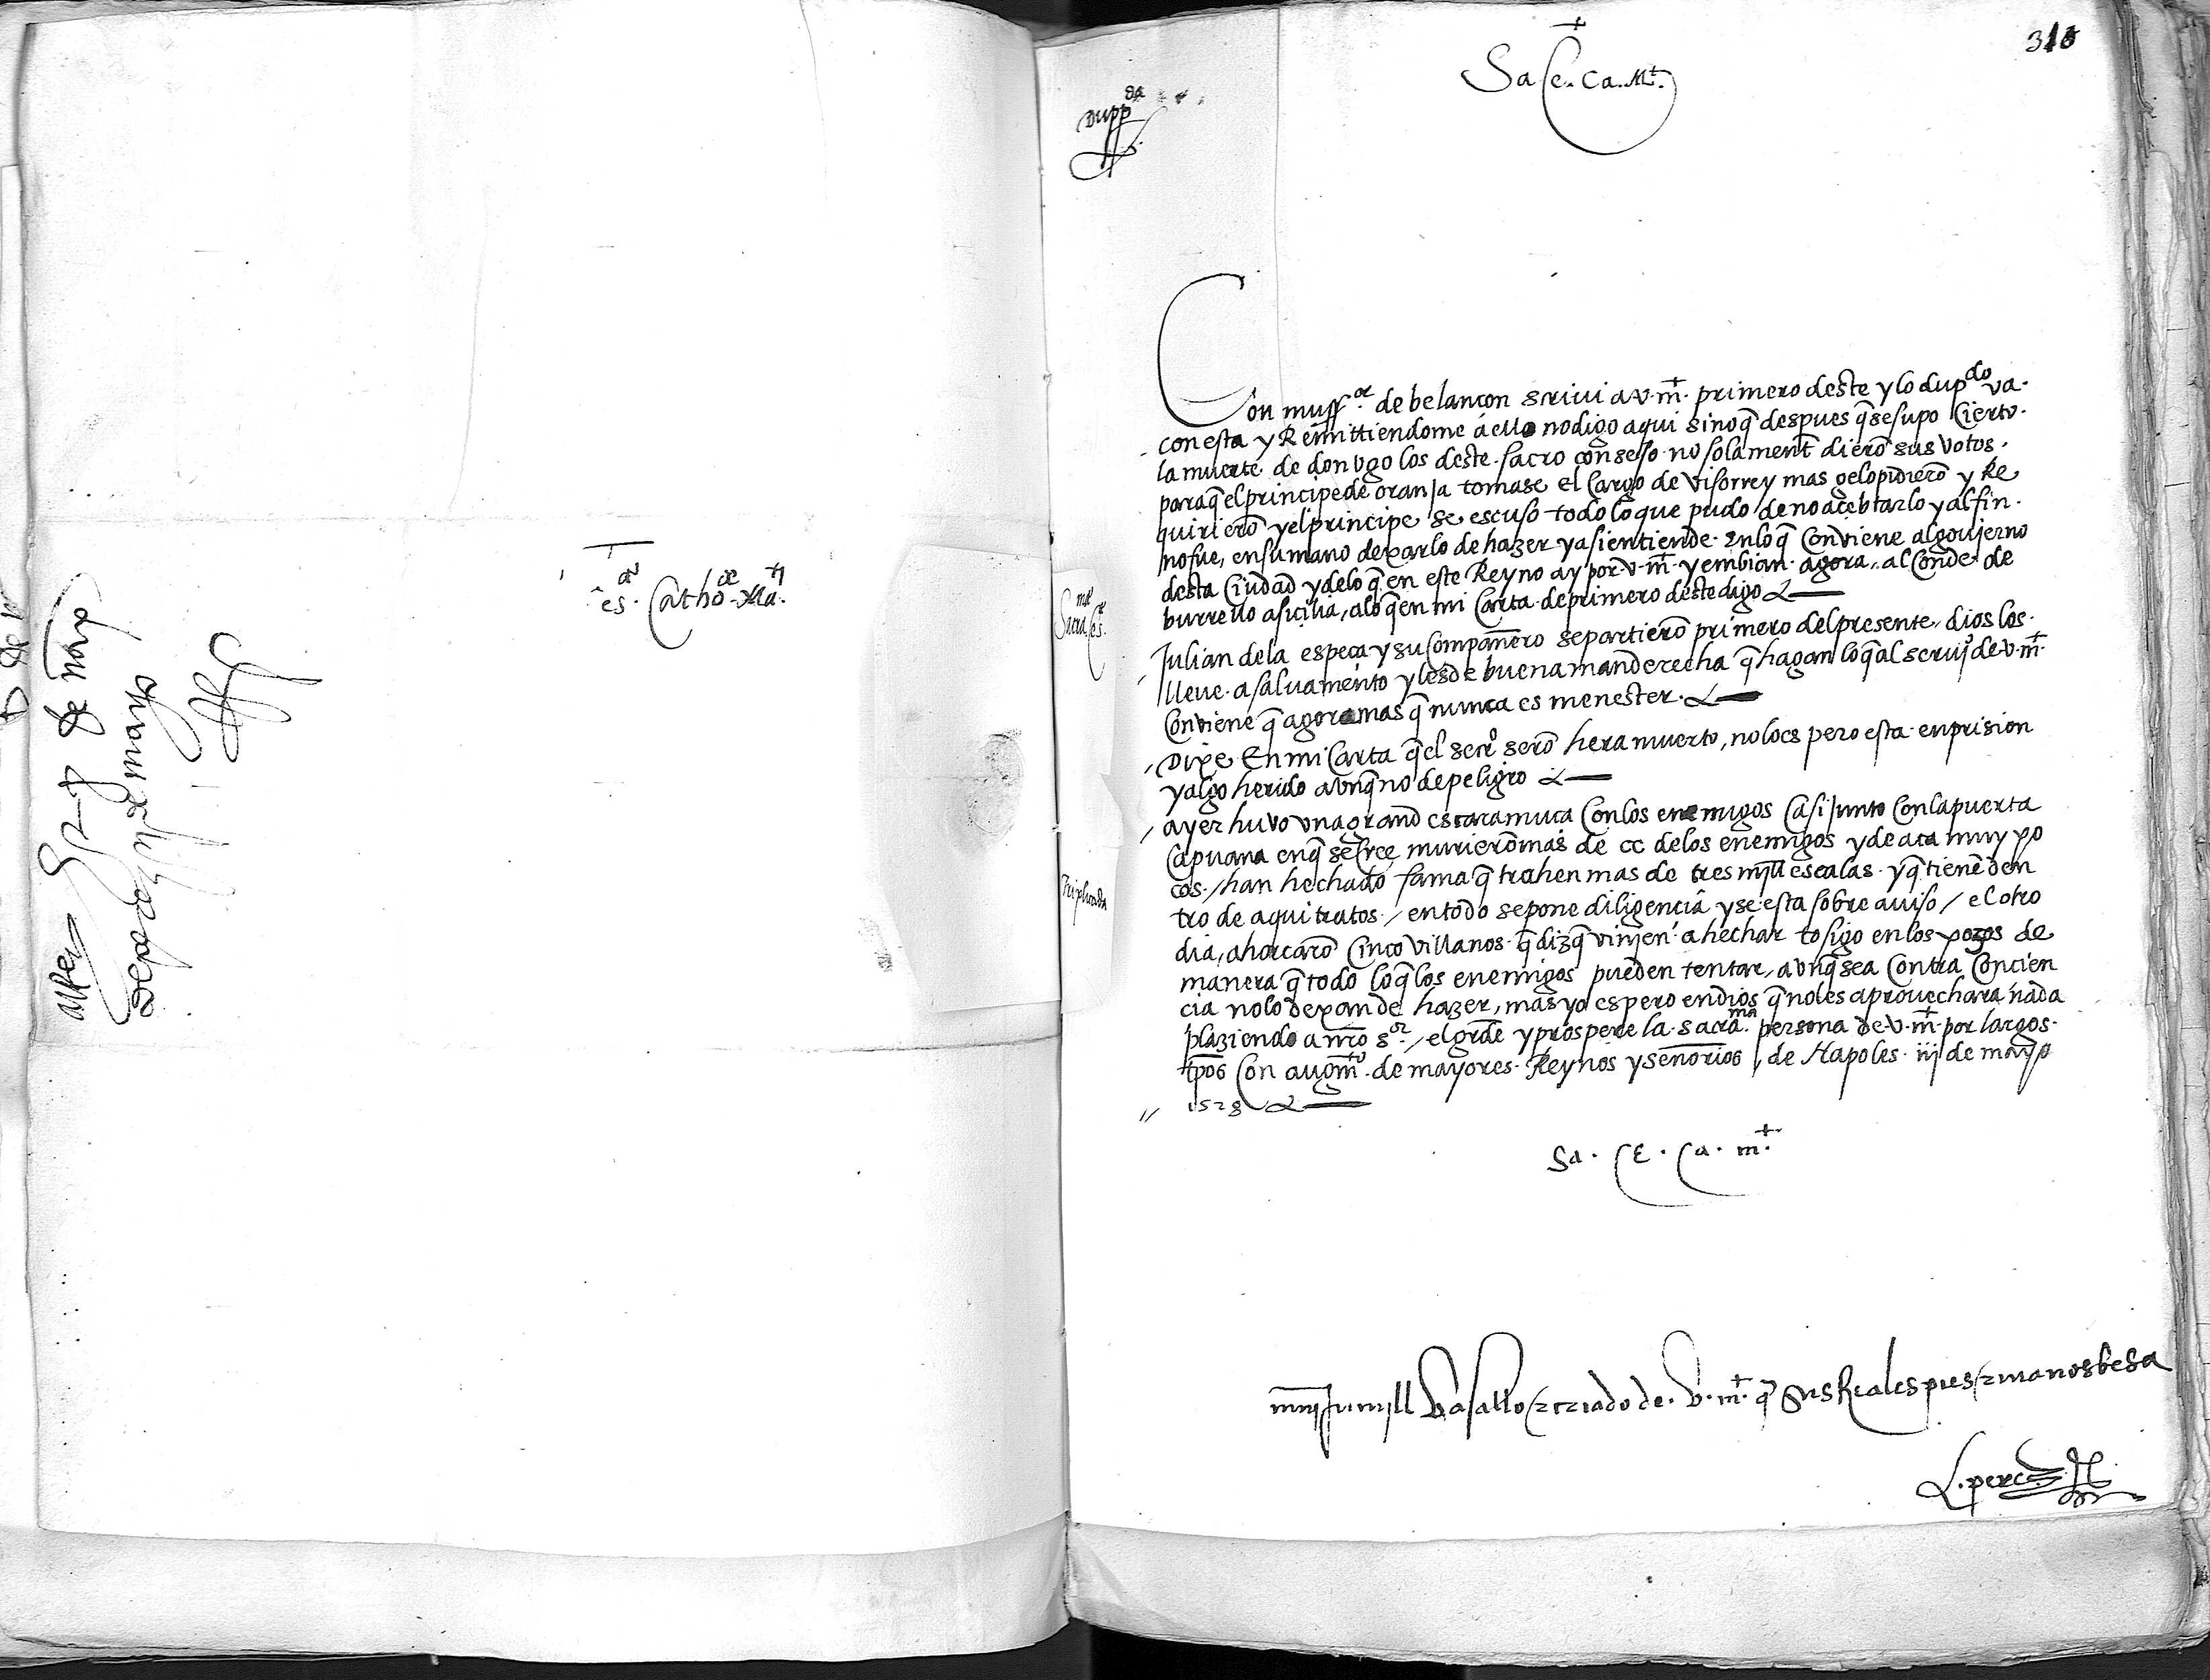 es. Catho. Ma.t
Sacra Ces.
Triplicada
318
Dupp.da
Sa. Ce. Ca. M.t
Con mussor. de belancon scriui a v. m.t primero deste y lo dupdo va.
con esta y Remittiendome á ello no digo aqui sino q̃ despues q̃ se supo Cierto.
la muerte de don vgo los deste. sacro consejo. no solament dierõ sus votos.
para q̃ el principe de oranja tomase el Cargo de visorrey mas gelo pidierõ y Re
quirierõ y el principe se escuso todo lo que pudo de no acebtarlo y al fin.
no fue, en su mano dexarlo de hazer y asi entiende. en lo q̃ Conviene al gouierno
desta Ciudad y de lo q̃ en este Reyno ay por v. m.t y embian. agora, al Conde de
burrello a sicilia, a lo q̃ en mi Carta de primero deste digo
Julian de la espeça y su Compañero se partierõ primero del presente, dios los.
lleue. a saluamento y les de buena manderecha q̃ hagan lo q̃ al seruiº de v. m.t
Conviene q̃ agora mas q̃ nunca es menester.
Dixe En mi Carta q̃ el secrº serõ hera muerto, no lo es pero esta en prision
y algo herido avnq̃ no de peligro
ayer huvo vna grand escaramuca Con los enemigos Casi junto Con la puerta
Capuana en q̃ se Cree murierõ mas de cc de los enemigos y de aca muy po
cos. / han hechado fama q̃ trahen mas de tres mill escalas. y q̃ tienẽ den
tro de aqui tratos. / en todo se pone diligencia y se esta sobre auiso / el otro
dia, ahorcarõ Cinco villanos. q̃ diz q̃ vinjen a hechar tosigo en los pozos de
manera q̃ todo lo q̃ los enemigos pueden tentar, avnq̃ sea Contra Concien
cia no lo dexan de hazer, mas yo espero en dios q̃ no les aprouechara nada
plaziendo a nrõ sor. / el grde y prospere la. sacra.ma persona de v. m.t por largos.
tpos Con augmº. de mayores. Reynos y señorios, de Napoles. iij de mayo
1528
Sa. Ce. Ca. m.t
Vasallo criado de. v. m.t q̃ sus Reales pies manos besa
L. perez